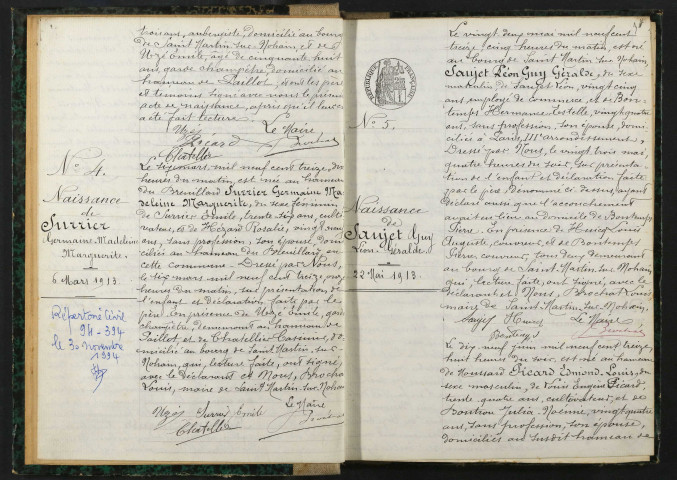 trois ans, aubergiste, domicilié au bourg
de Saint Martin-sur-Nohain, et de
Uzé Émile, âgé de cinquante huit
ans, garde champêtre, domicilié au
hameau de Paillot, dont les père
et témoins signé avec nous le présent
acte de naissance, après qu'il leur en
a été fait lecture.
Uzé Le Maire
Picard
Chatellier
N° 4.
Naissance
de
Surrier
Germaine Madeleine
Marguerite.
6 Mars 1913.
Répertoire Civil
94-394
le 30 novembre
1994
Le six mars mil neuf cent treize, deux
heures du matin, est née au hameau
du Breuillard Surrier Germaine Ma-
deleine Marguerite, du sexe féminin,
de Surrier Émile, trente six ans, culti-
vateur, et de Hézard Rosalie, vingt
ans, sans profession, son épouse, domi-
ciliés au hameau du Breuillard
cette commune. Dressé par Nous,
le six mars mil neuf cent treize,
heures du matin, sur présentation de
l'enfant et déclaration faite par le
père. En présence de Uzé Émile, garde
champêtre, demeurant au hameau de
Paillot, et de Chatellier Cassius, do-
micilié au bourg de Saint Martin-sur-
Nohain, qui, lecture faite, ont signé,
avec le déclarant et Nous, Brochot
Louis, maire de Saint Martin-sur-Nohain
Uzé Surrier Émile Le Maire
Chatellier
RÉPUBLIQUE FRANÇAISE
N° 5.
Naissance
de
Saujet Guy
Léon Géralde.
22 Mai 1913.
Le vingt deux mai mil neuf cent
treize, cinq heures du matin, est né
au bourg de Saint Martin sur Nohain,
Saujet Léon Guy Géralde, du sexe
masculin, de Saujet Léon, vingt cinq
ans, employé de commerce, et de Bon-
temps Hermance Estelle, vingt quatre
ans, sans profession, son épouse, domi-
ciliés à Paris, IIIe arrondissement.
Dressé par Nous, le vingt trois mai,
quatre heures du soir, sur présenta-
tion de l'enfant et déclaration faite
par le père dénommé ci-dessus, ayant
déclaré aussi que l'accouchement
avait eu lieu au domicile de Bontemps
Pierre. En présence de
Auguste, couvreur, et de Bontemps
Pierre, couvreur, tous deux demeurant
au bourg de Saint-Martin-sur-Nohain,
qui, lecture faite, ont signé, avec le
déclarant et Nous, Brochot Louis,
maire de Saint Martin-sur-Nohain.
Saujet Le Maire
Bontemps
Le dix neuf juin mil neuf cent treize,
huit heures du soir, est né au hameau
de Moussard Picard Edmond Louis, du
sexe masculin, de Louis Eugène Picard,
trente quatre ans, cultivateur, et de
Julia Noémie, vingt quatre
ans, sans profession, son épouse,
domiciliés au susdit hameau de